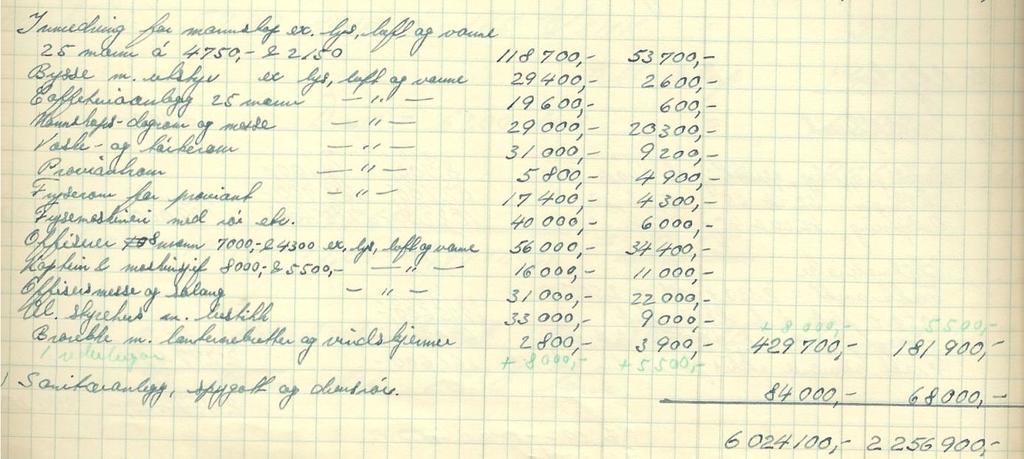 Innredning for mannskap ex. lys, luft og varme
25 mann á 4750,- & 2150 118 700,- 53 700,-
Bysse m. utstyr ex lys, luft og varme 29 400,- 2 600,-
Caffeteriaanlegg 25 mann — " — 19 600,- 600,-
Mannskaps-dagrom og messe — " — 29 000,- 20 300,-
Vaske- og tørkerom — " — 31 000,- 9 200,-
Proviantrom — " — 5 800,- 4 900,-
Fryserom for proviant — " — 17 400,- 4 300,-
Frysemaskineri med rør etc. 40 000,- 6 000,-
Offiserer 8 mann 7000,- & 4300 ex. lys, luft og varme 56 000,- 34 400,-
Kaptein & maskinsjef 8000,- & 5500,- — " — 16 000,- 11 000,-
Offisersmesse og salong — " — 31 000,- 22 000,-
Al. styrehus m. bestikk 33 000,- 9 000,- + 8 000,- 5 500,-
Brodekk m. lanternebrett og vindskjermer 2 800,- 3 900,- 429 700,- 181 900,-
+ 8 000,- + 5 500,-
Sanitæranlegg, spygatt og dreneringsrør. 84 000,- 68 000,-
6 024 100,- 2 256 900,-